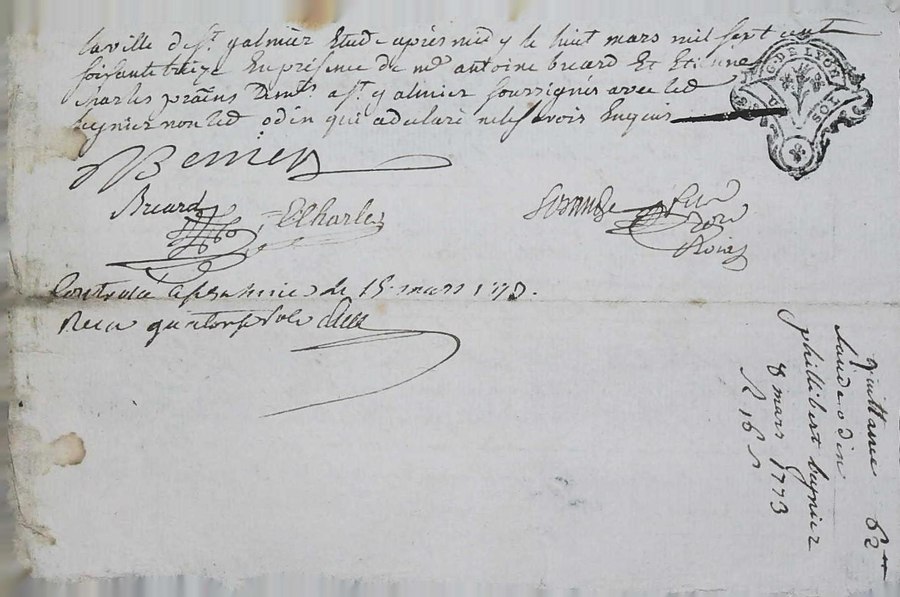 la ville de St galmier Etude après midy le huit mars mil sept cent
soisante treize En présence de me antoine bréard Et Etienne
Charles pratiens Demts a St galmier soussignés avec led
beynier non led odin qui a déclaré ne scavoir Enquis
G. DE LYON
SOLS
Breard
ECharles
Controllé a St galmier le 15 mars 1773.
Recu quatorze sols
quittance 62
Claude odin
phillibert beynier
8 mars 1773
16 s